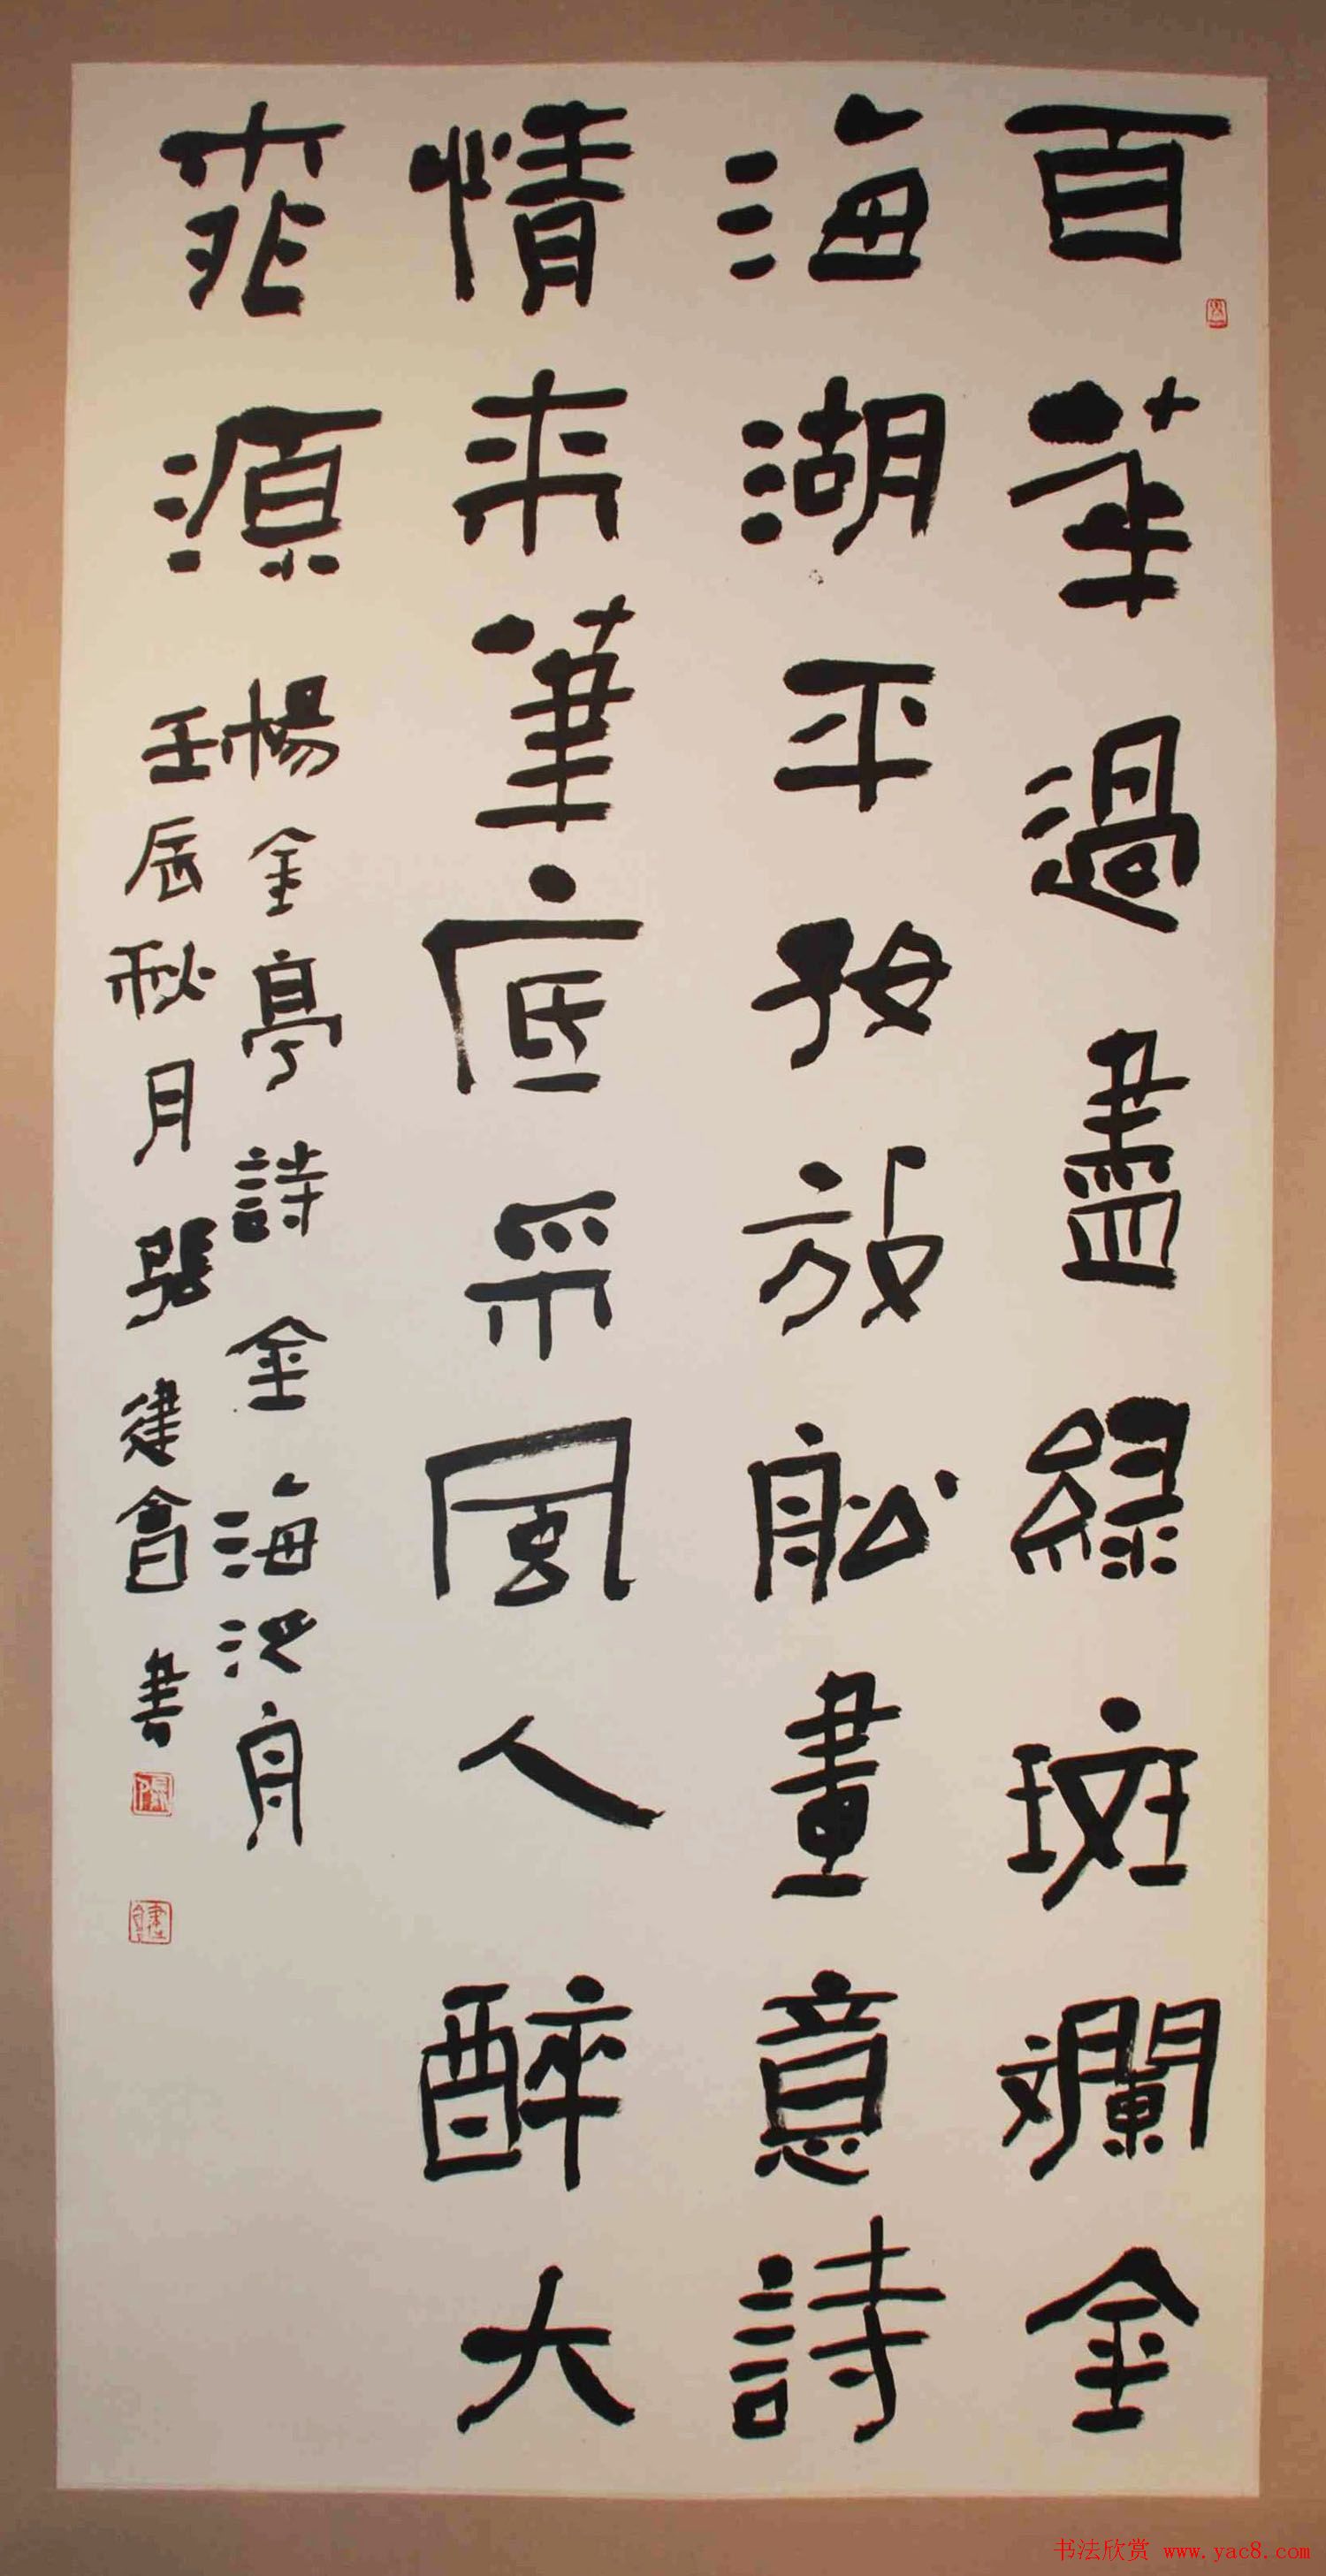 百華過盡綠斑斕金
海湖平好放舩畫意詩
情來筆底采風人醉大
桃源
楊金亭詩金海泛舟
壬辰秋月張建會書
书法欣赏 www.yac8.com